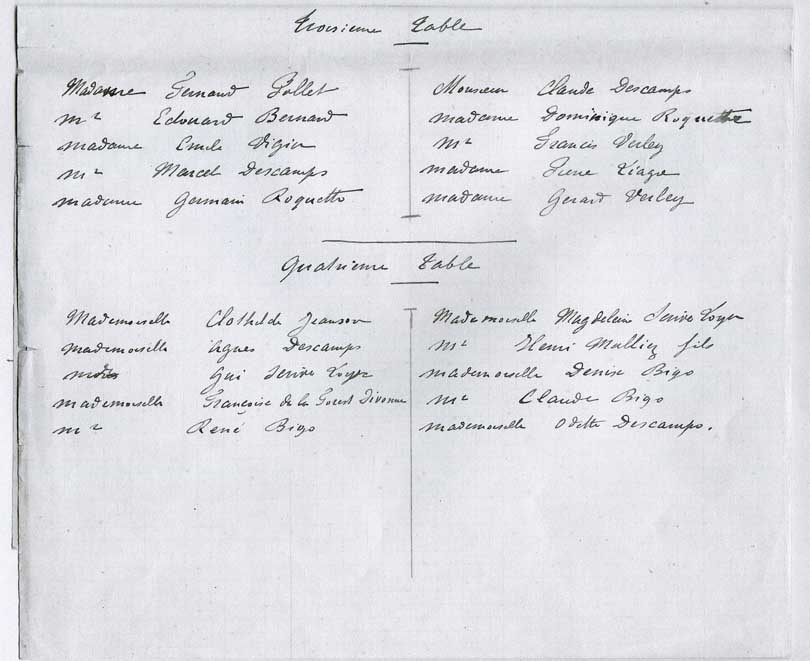 Troisieme Table
Madame Fernand Pollet
Mr Edouard Bernard
madame Emile Vigier
Mr Marcel Descamps
madame Germain Roquette
Monsieur Claude Descamps
madame Dominique Roquette
Mr Francis Verley
madame Liagre
madame Gerard Verley
Quatrieme Table
Mademoiselle Clothilde Jeanson
mademoiselle Agnes Descamps
Gui Scrive Loyer
mademoiselle Françoise de la Forest Divonne
Mr René Bigo
Mademoiselle Magdelein Scrive Loyer
Mr Henri Mulliez fils
mademoiselle Denise Bigo
Mr Claude Bigo
mademoiselle Odette Descamps.